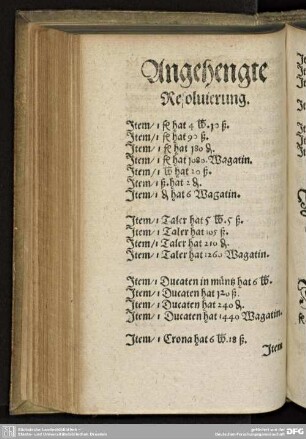 Angehengte
Resoluierung.
Item/ 1 fl hat 4 W. 10 ß.
Item/ 1 fl hat 90 ß.
Item/ 1 fl hat 180 ₰.
Item/ 1 fl hat 1080. Wagatin.
Item/ 1 W hat 20 ß.
Item/ 1 ß. hat 2 ₰.
Item/ 1 ₰ hat 6 Wagatin.
Item/ 1 Taler hat 5 W. 5 ß.
Item/ 1 Taler hat 105 ß.
Item/ 1 Taler hat 210 ₰.
Item/ 1 Taler hat 1260 Wagatin.
Item/ 1 Ducaten in müntz hat 6 W.
Item/ 1 Ducaten hat 120 ß.
Item/ 1 Ducaten hat 240 ₰.
Item/ 1 Ducaten hat 1440 Wagatin.
Item/ 1 Crona hat 6 W. 18 ß.
Item